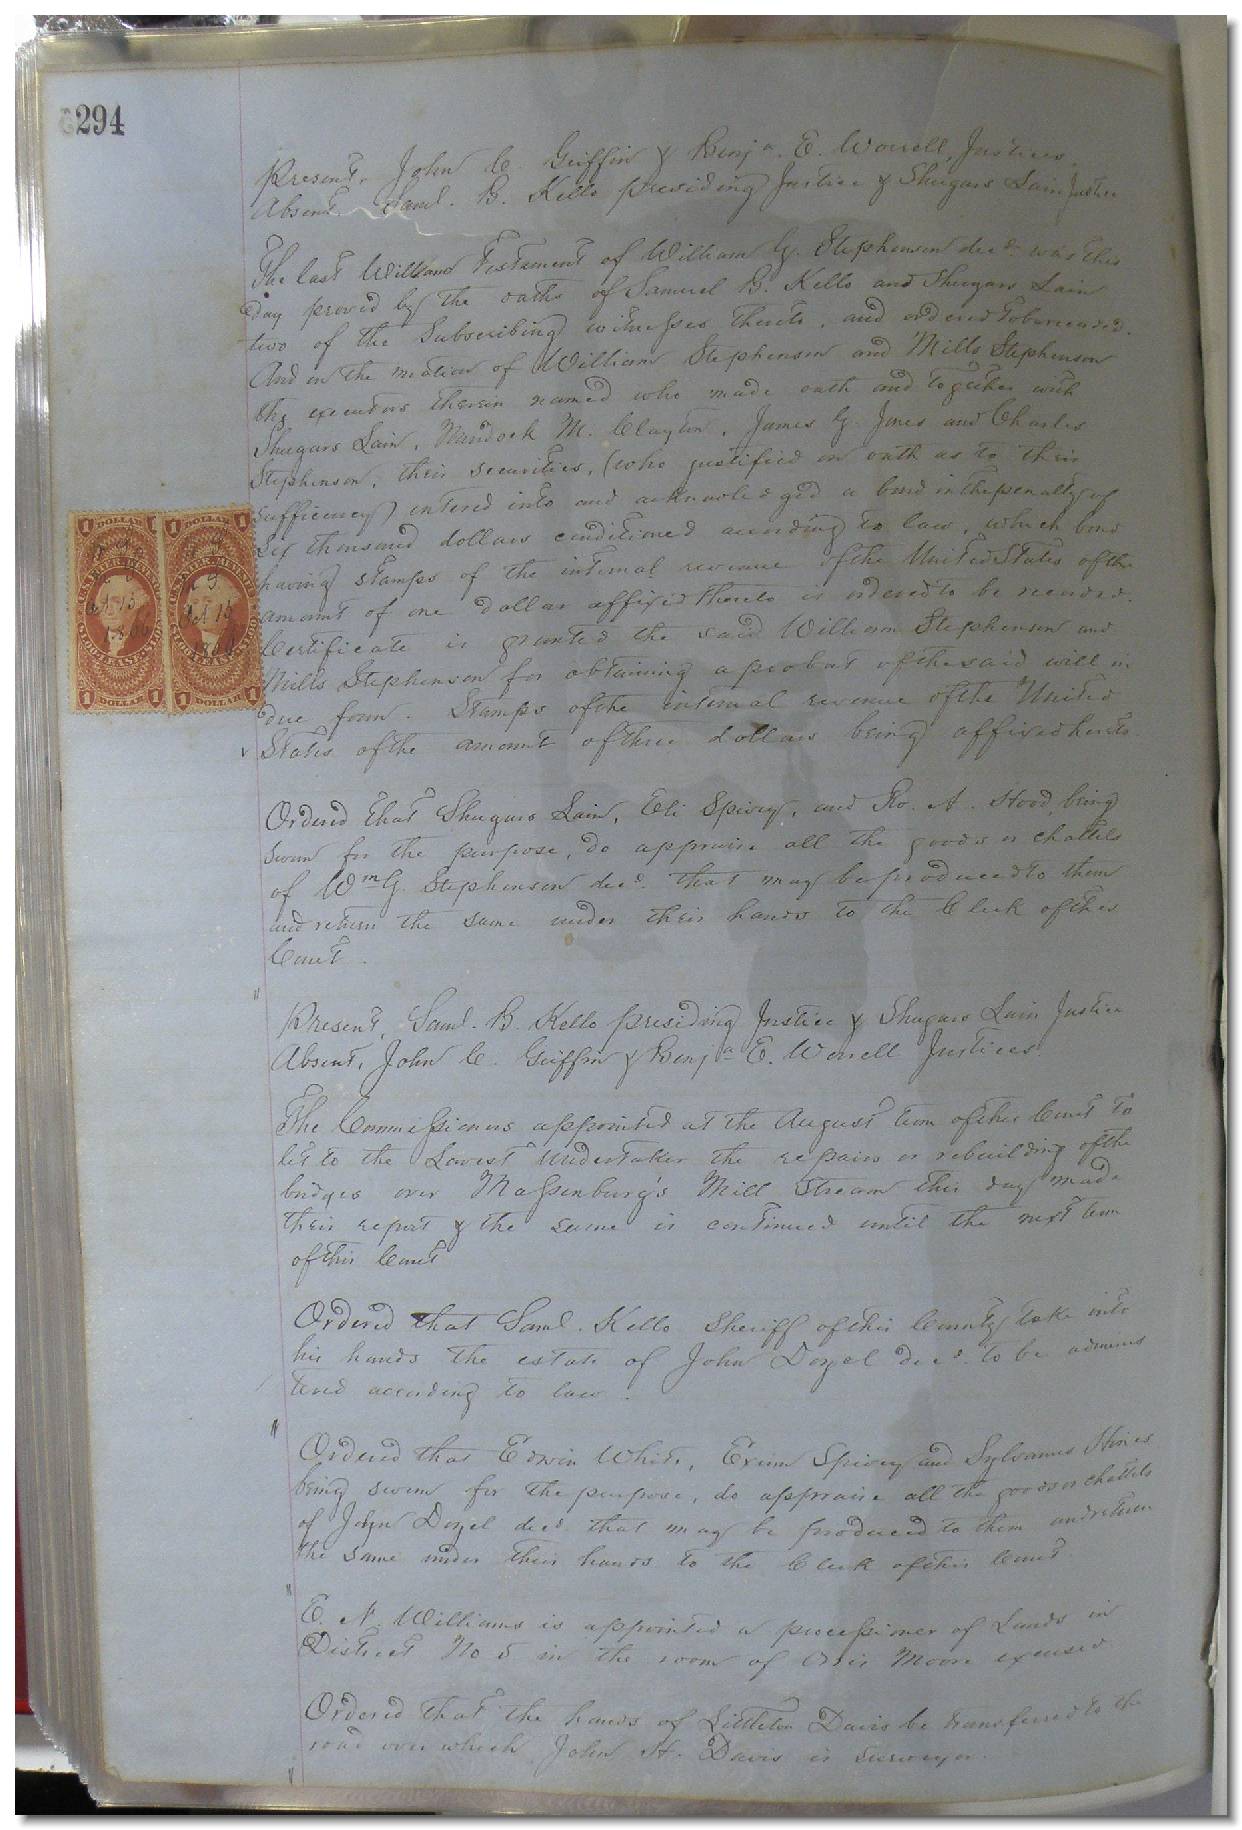 294
Present, John C. Griffin & Benja. E. Worrell, Justices.
Absent Saml. B. Kello presiding Justice & Shugars Lain Justice
The last Will and Testament of William G. Stephenson decd. was this
day proved by the oaths of Samuel B. Kello and Shugars Lain
two of the subscribing witnesses thereto, and ordered to be recorded.
And on the motion of William Stephenson and Mills Stephenson
the executors therein named who made oath and together with
Shugars Lain, M. Clayton, James G. Jones and Charles
Stephenson, their securities, (who justified on oath as to their
sufficiency) entered into and acknowledged a bond in the penalty of
Six thousand dollars conditioned according to law, which bond
having stamps of the internal revenue of the United States of the
amount of one dollar affixed thereto is ordered to be recorded.
Certificate is granted the said William Stephenson and
Mills Stephenson for obtaining a probat of the said will in
due form. Stamps of the internal revenue of the United
States of the amount of three dollars being affixed hereto.
1 DOLLAR 1 1 DOLLAR 1
U.S. INTER. REVENUE U.S. INTER. REVENUE
Oct 15 Oct 15
1866 1866
1 DOLLAR 1 1 DOLLAR 1
Ordered that Shugars Lain, Eli Spivey, and Ro. A. being
sworn for the purpose, do appraise all the goods or chattels
of Wm G. Stephenson decd. that may be produced to them
and return the same under their hands to the Clerk of this
Court.
Present, Saml. B. Kello presiding Justice & Shugars Lain Justice
Absent, John C. Griffin & Benja E. Worrell Justices.
The Commissioners appointed at the August term of this Court to
let to the Lowest undertaker the repairs or rebuilding of the
bridges over Massenburg's Mill Stream this day made
their report & the same is continued until the next term
of this Court
Ordered that Saml. Kello Sheriff of this County take into
his hands the estate of John Doyel decd. to be adminis
tered according to law.
Ordered that Edwin White, Exum Spivey and Sylvanus Stives
being sworn for the purpose, do appraise all the goods or chattels
of John Doyel decd. that may be produced to them and return
the same under their hands to the Clerk of this Court
E. N. Williams is appointed a processioner of Lands in
District No 5 in the room of Orris Moore excused
Ordered that the hands of Littleton Davis be transferred to the
road over which John H. Davis is surveyor.